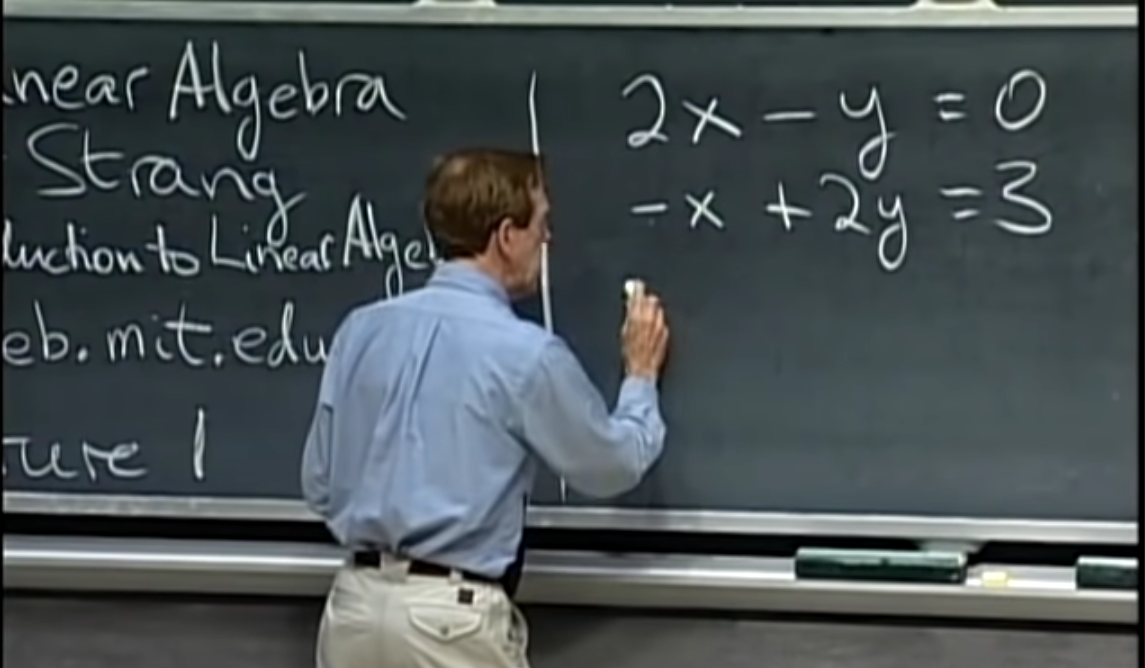 near Algebra
Strang
duction to Linear Alge
eb.mit.edu
ture 1
2x - y = 0
-x + 2y = 3